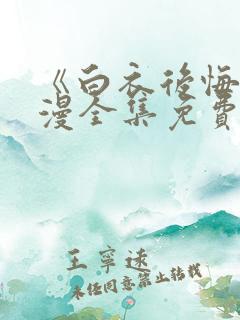 《白衣後悔
漫全集免費
王寧遠
未经同意禁止转载